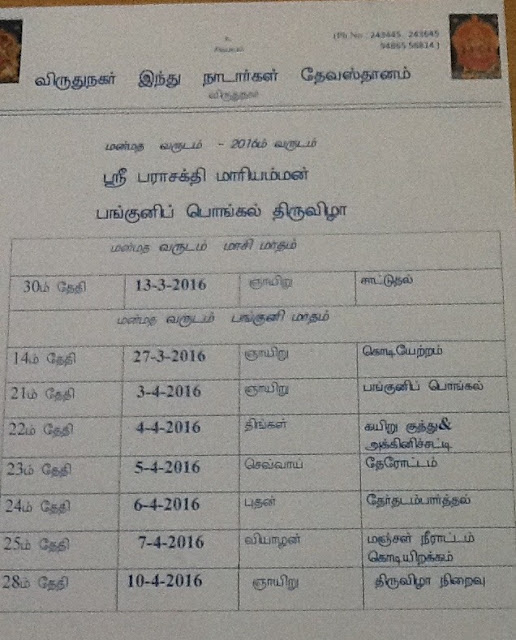 உ
சிவமயம்
(Ph No : 243445, 243645
94865 56824 )
விருதுநகர் இந்து நாடார்கள் தேவஸ்தானம்
விருதுநகர்
மன்மத வருடம் - 2016ம் வருடம்
ஸ்ரீ பராசக்தி மாரியம்மன்
பங்குனிப் பொங்கல் திருவிழா
மன்மத வருடம் மாசி மாதம்
30ம் தேதி 13-3-2016 ஞாயிறு சாட்டுதல்
மன்மத வருடம் பங்குனி மாதம்
14ம் தேதி 27-3-2016 ஞாயிறு கொடியேற்றம்
21ம் தேதி 3-4-2016 ஞாயிறு பங்குனிப் பொங்கல்
22ம் தேதி 4-4-2016 திங்கள் கயிறு குத்து&
அக்கினிச்சட்டி
23ம் தேதி 5-4-2016 செவ்வாய் தேரோட்டம்
24ம் தேதி 6-4-2016 புதன் தேர்தடம்பார்த்தல்
25ம் தேதி 7-4-2016 வியாழன் மஞ்சள் நீராட்டம்
கொடியிறக்கம்
28ம் தேதி 10-4-2016 ஞாயிறு திருவிழா நிறைவு